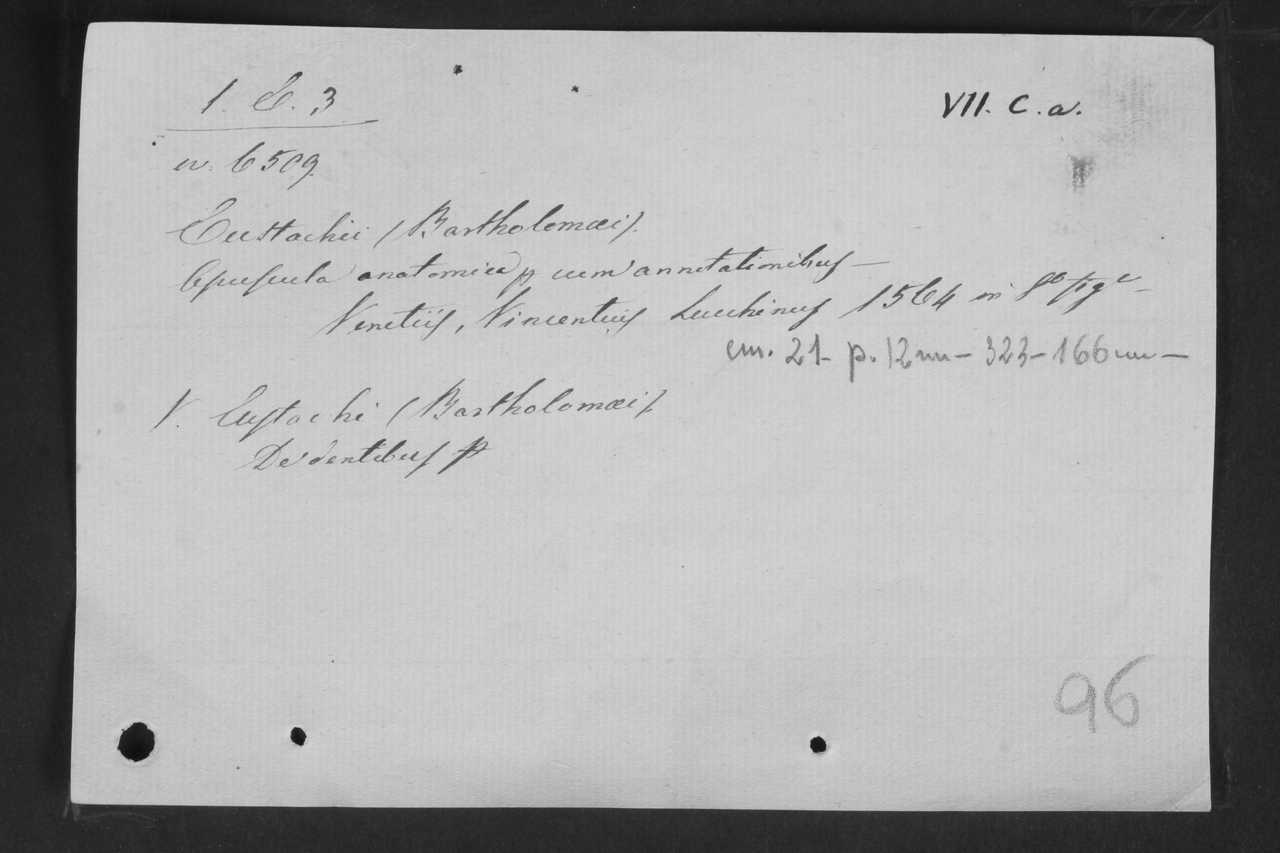 1. E. 3
VII. C. a.
w. 6509.
Eustachii (Bartholomæi).
Opuscula anatomica p cum annotationibus —
Venetiis, Vincentius Luchinus 1564 in 8º fig.
cm. 21 - p. 12nn - 323 - 166nn —
V. Eustachi (Bartholomæi)
De dentibus p
96